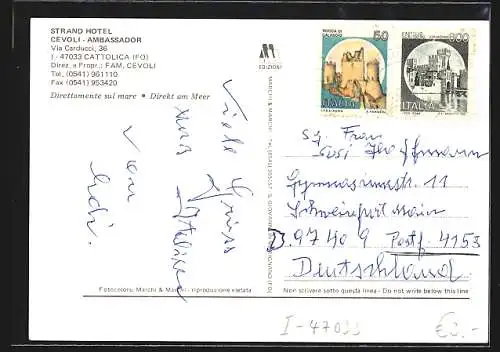 STRAND HOTEL
CEVOLI - AMBASSADOR
Via Carducci, 36
I - 47033 CATTOLICA (FO)
Direz. e Propr.: FAM. CEVOLI
Tel. (0541) 961110
Fax (0541) 953420
Direttamente sul mare • Direkt am Meer
Viele Grüsse
aus Italien
von
M
EDIZIONI
ROCCA DI
CALASCIO
50
ITALIA
800
ITALIA
Frau
Gymnasiumstr. 11
Schweinfurt Main
D. 97409 Postf. 4153
Deutschland
Fotocolors: Marchi & Marchi - riproduzione vietata
Non scrivere sotto questa linea - Do not write below this line
I-47033
€2.-